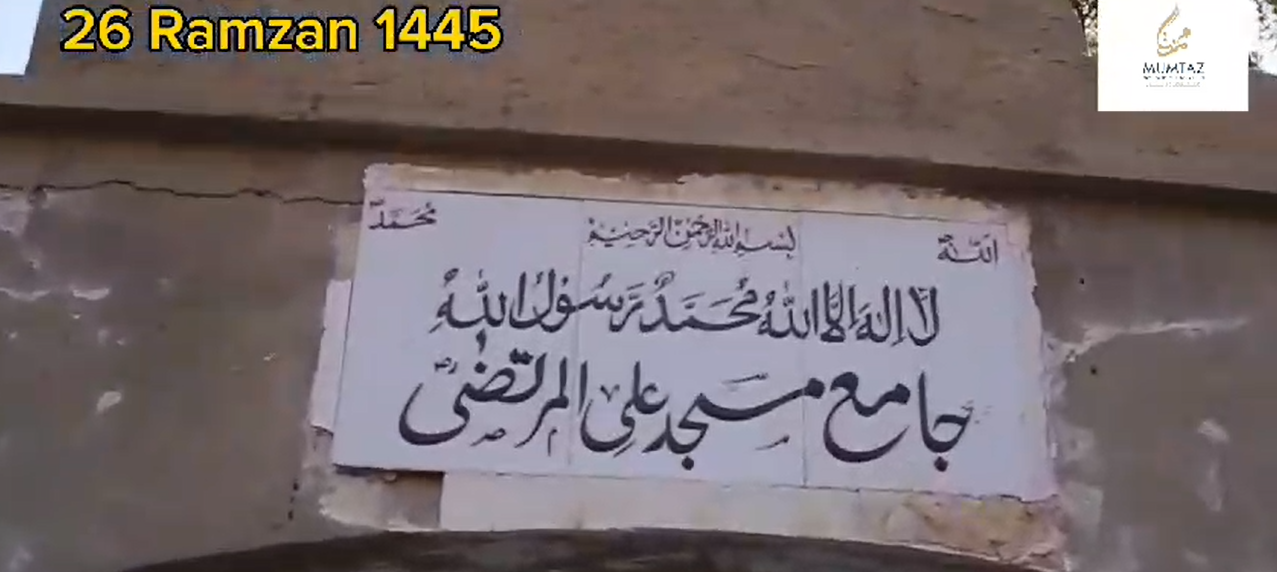 26 Ramzan 1445
MUMTAZ
اللہ بسم اللہ الرحمن الرحیم محمد
لَا اِلٰهَ اِلَّا اللهُ مُحَمَّدٌ رَّسُوْلُ اللهِ
جامع مسجد علی المرتضیٰ